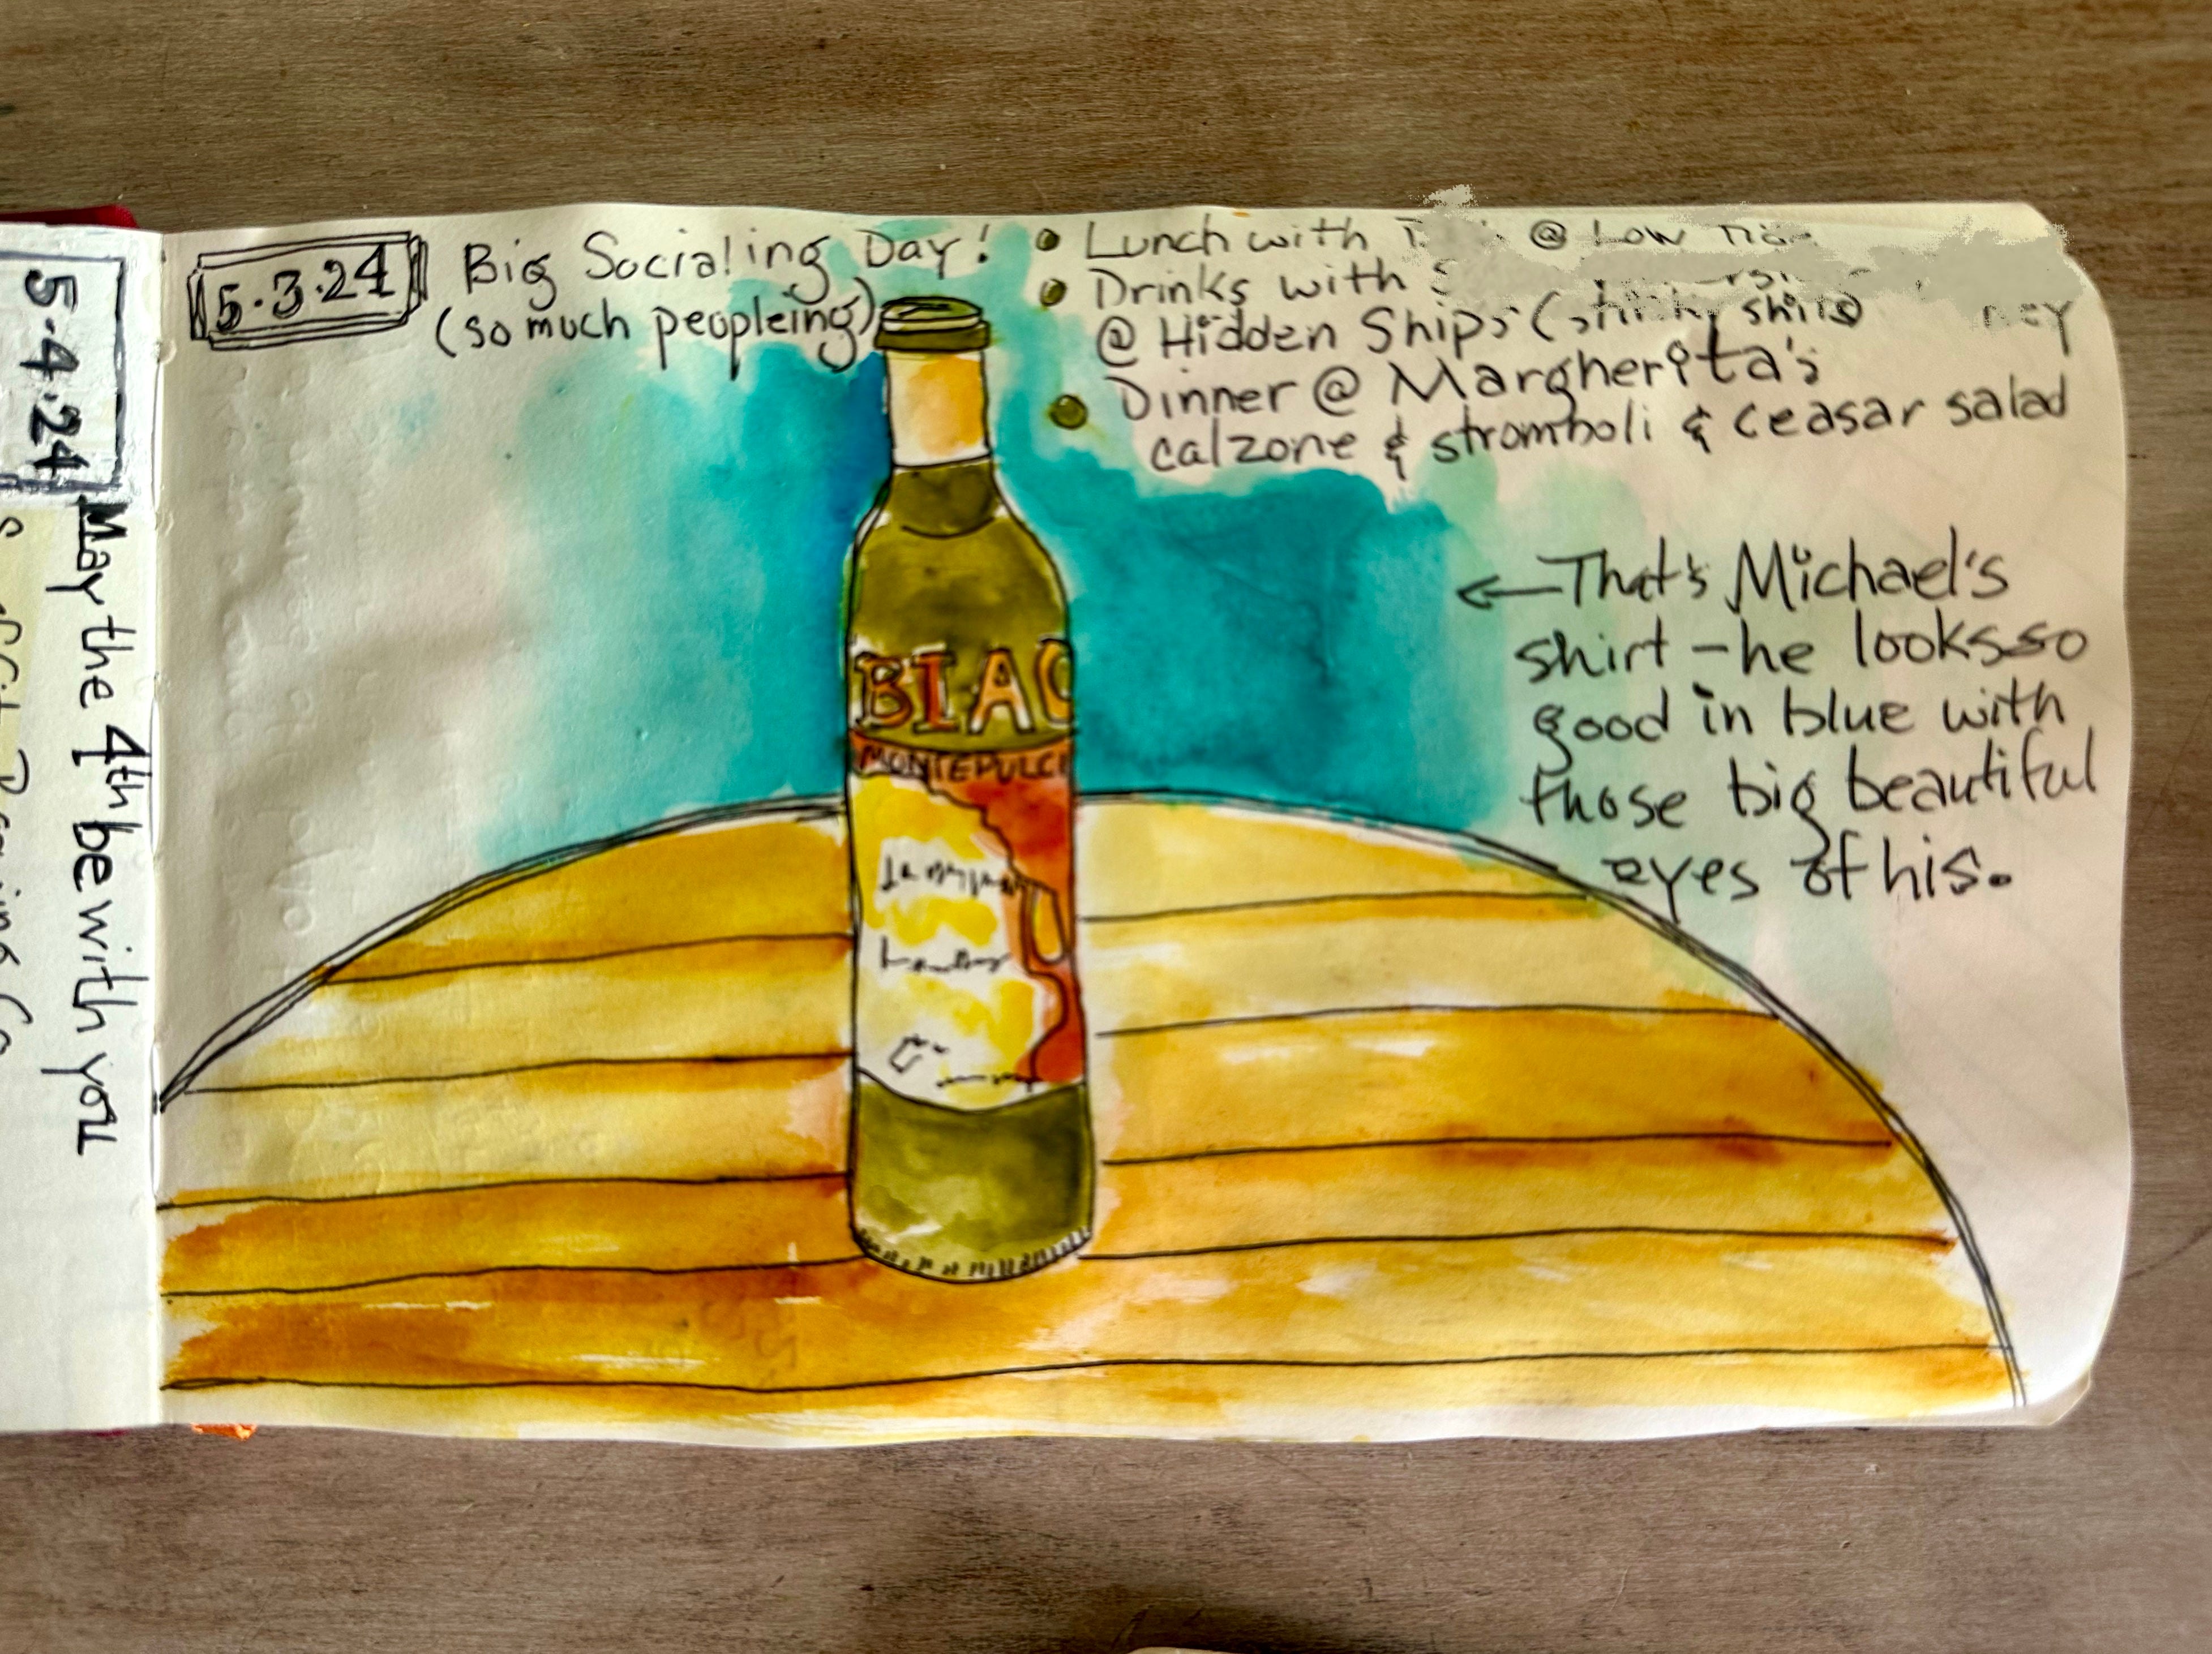 5.3.24
Big Socialing Day!
(so much peopleing)
Lunch with @ Low
Drinks with
@ Hidden Ships
Dinner @ Margherita's
calzone & stromboli & ceasar salad
That's Michael's
shirt - he looks so
good in blue with
those big beautiful
eyes of his.
BIAC
MONTEPULCI
5.4.24
May the 4th be with you